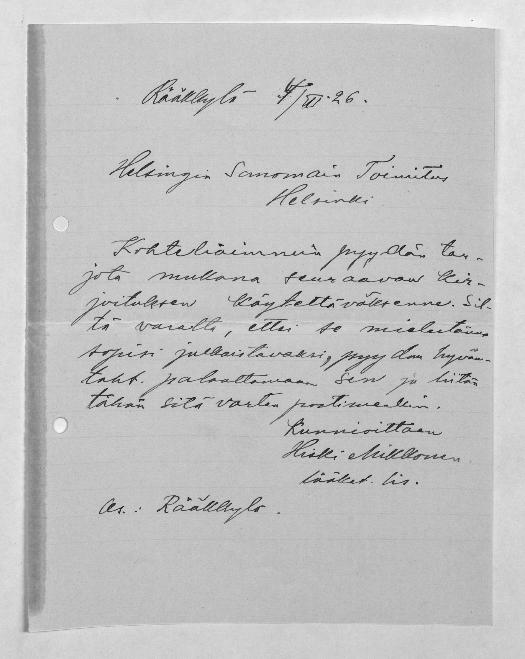 Rääkkylä /III 26.
Helsingin Sanomain Toimitus
Helsinki
Kohteliaimmin pyydän tar-
jota mukana seuraavan kir-
joituksen käytettäväksenne. Sil-
tä varalta, ettei se mielestänne
sopisi julkaistavaksi, pyydän hyvän-
taht. palauttamaan sen ja liitän
tähän sitä varten postimerkin.
Kunnioittaen
Heikki Mikkonen
lääket. lis.
Os.: Rääkkylä.